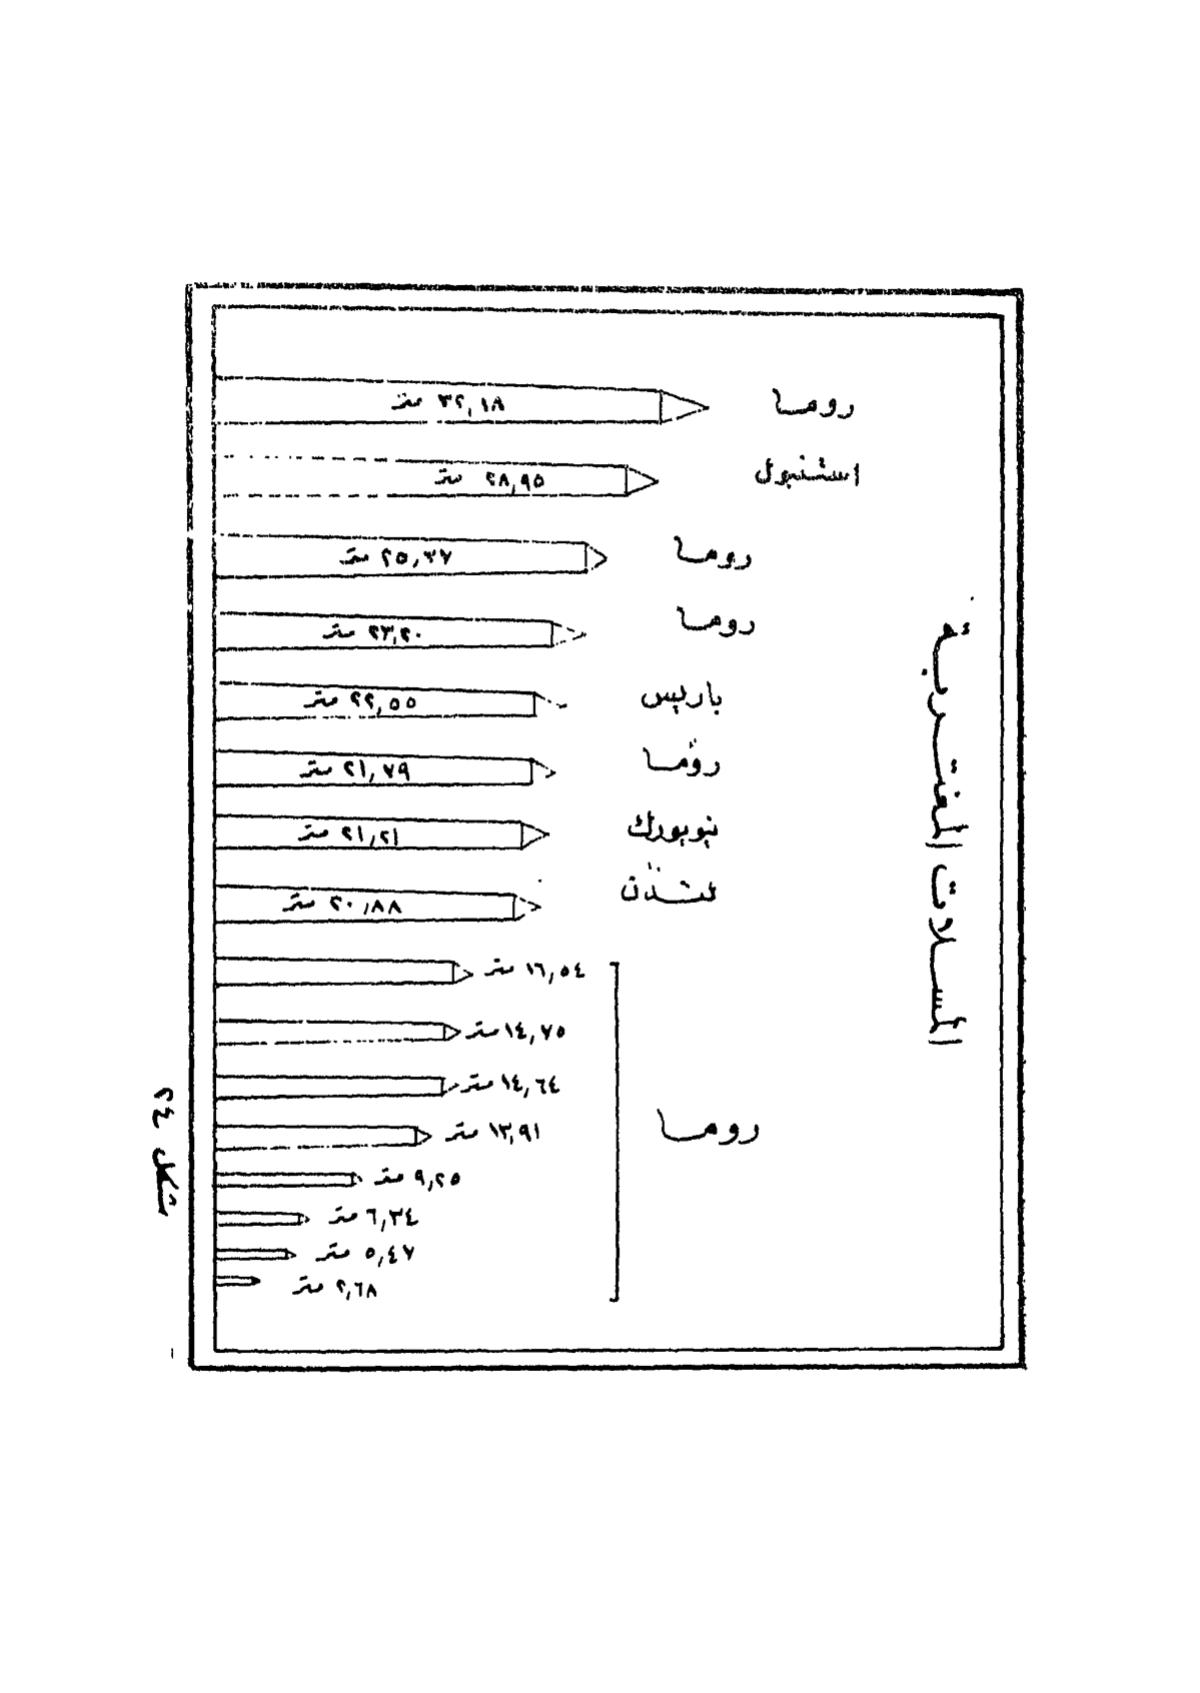 المسلات المغتربة
روما ٣٢,١٨ متر
استنبول ٢٨,٩٥ متر
روما ٢٥,٣٧ متر
روما ٢٣,٢٠ متر
باريس ٢٢,٥٥ متر
روما ٢١,٧٩ متر
نيويورك ٢١,٢١ متر
لندن ٢٠,٨٨ متر
١٦,٥٤ متر
١٤,٧٥ متر
١٤,٦٤ متر
روما
١٣,٩١ متر
٩,٢٥ متر
٦,٣٤ متر
٥,٤٧ متر
٢,٦٨ متر
شكل ٢٤